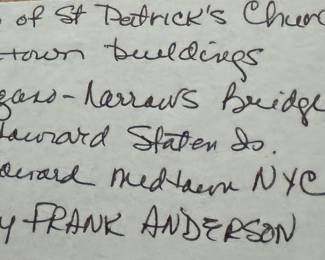 of St Patrick's Churc
town buildings
zano-Narrows Bridge
toward Staten Is.
oward midtown NYC
y FRANK ANDERSON